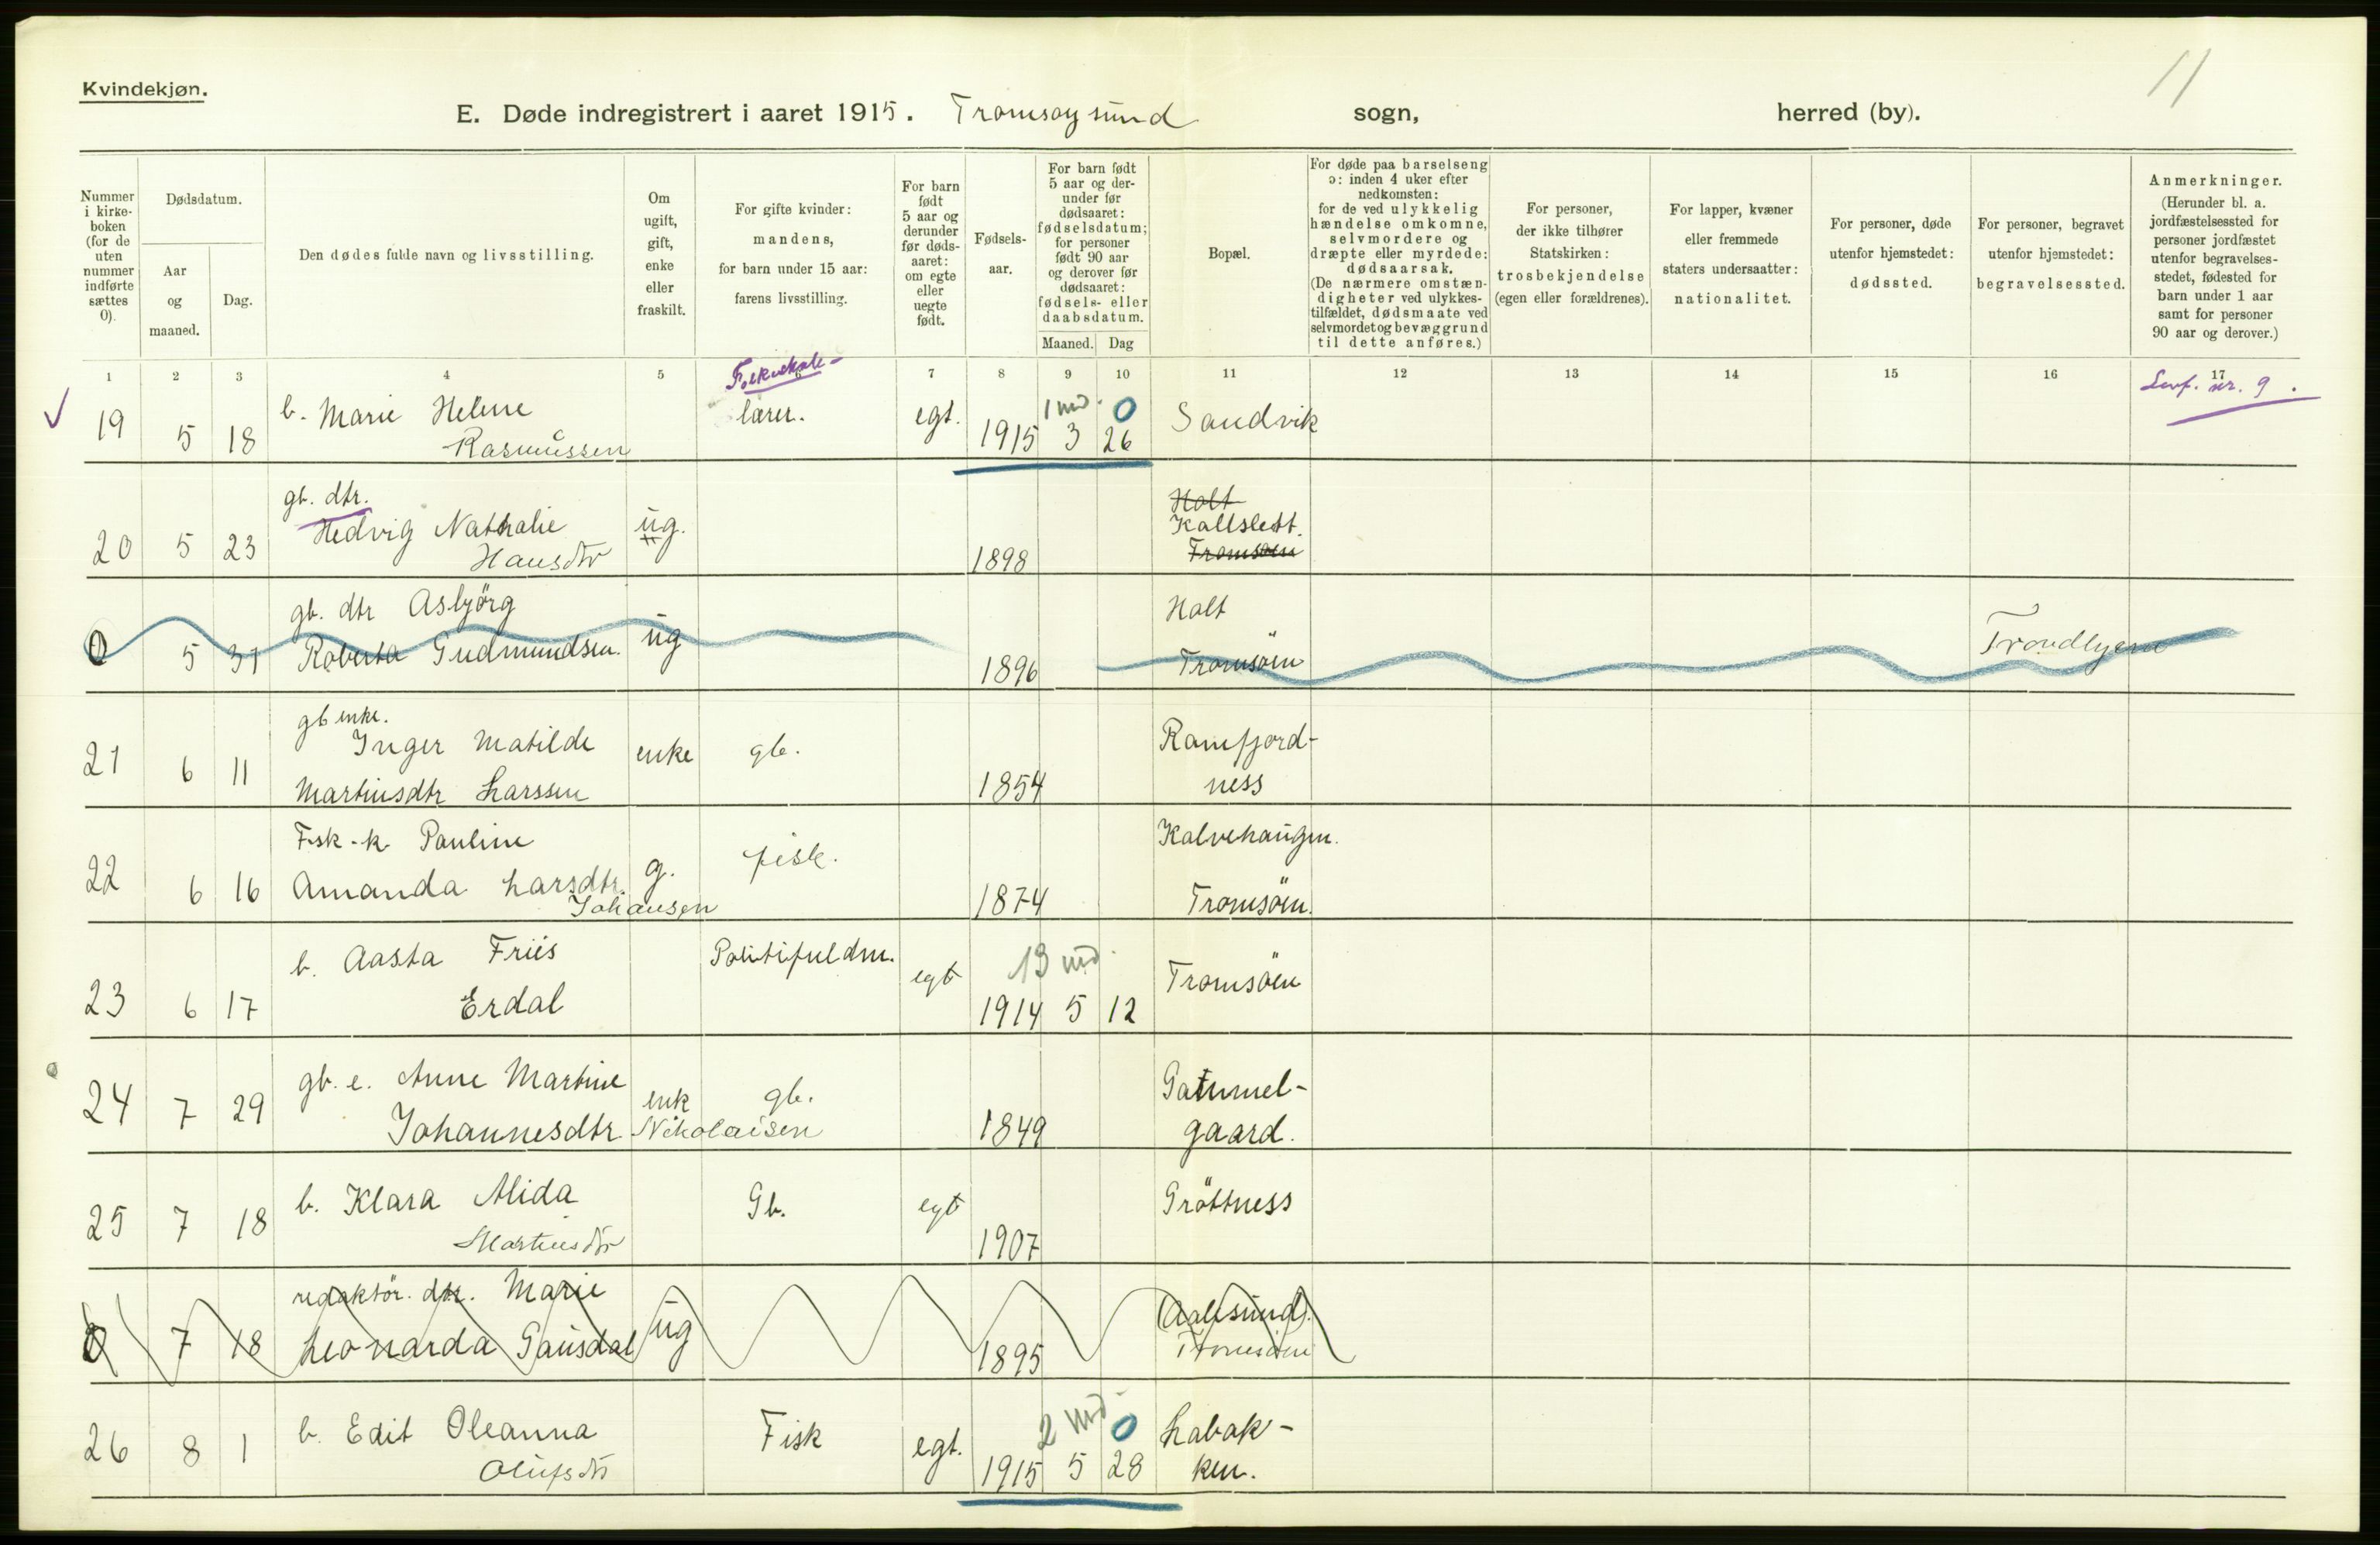 Kvindekjøn.
11
E. Døde indregistrert i aaret 1915. Tromsøysund sogn, herred (by).
Nummer i kirkeboken (for de uten nummer indførte sættes 0).
Dødsdatum.
Aar og maaned.
Dag.
Den dødes fulde navn og livsstilling.
Om ugift, gift, enke eller fraskilt.
For gifte kvinder: mandens, for barn under 15 aar: farens livsstilling.
For barn født 5 aar og derunder før dødsaaret: om egte eller uegte født.
Fødselsaar.
For barn født 5 aar og derunder før dødsaaret: fødselsdatum; for personer født 90 aar og derover før dødsaaret: fødsels- eller daabsdatum.
Maaned. Dag
Bopæl.
For døde paa barselseng ɔ: inden 4 uker efter nedkomsten: for de ved ulykkelig hændelse omkomne, selvmordere og dræpte eller myrdede: dødsaarsak. (De nærmere omstændigheter ved ulykkestilfældet, dødsmaate ved selvmordet og bevæggrund til dette anføres.)
For personer, der ikke tilhører Statskirken: trosbekjendelse (egen eller forældrenes).
For lapper, kvæner eller fremmede staters undersaatter: nationalitet.
For personer, døde utenfor hjemstedet: dødssted.
For personer, begravet utenfor hjemstedet: begravelsessted.
Anmerkninger. (Herunder bl. a. jordfæstelsessted for personer jordfæstet utenfor begravelsesstedet, fødested for barn under 1 aar samt for personer 90 aar og derover.)
1 2 3 4 5 6 7 8 9 10 11 12 13 14 15 16 17
19 5 18 b. Marie Helene Rasmussen Folkeskolelærer. egt. 1915 1 md. 0 3 26 Sandvik nr. 9.
20 5 23 gb. dtr. Hedvig Nathalie Hansdtr ug. 1898 Holt Kallslett. Tromsøen
0 5 31 gb. dtr Asbjörg Roberta Gudmundsen. ug 1896 Holt Tromsöen
21 6 11 gb enke. Inger Matilde Martinsdtr Larssen enke gb. 1854 Ramfjordness
22 6 16 Fisk-k. Pauline Amanda Larsdtr. Johansen g. fisk. 1874 Kalvehaugen. Tromsöen.
23 6 17 b. Aasta Friis Erdal Politifuldm. egt 13 md. 1914 5 12 Tromsöen
24 7 29 gb. e. Anne Martine Johannesdtr Nikolaisen enk gb. 1849 gaard.
25 7 18 b. Klara Alida Martinsdtr Gb. egt 1907 Gröttness
0 7 18 redaktör. dtr. Marie Leonarda Gausdal ug 1895 (Aalesund). Tromsöen
26 8 1 b. Edit Oleanna Olufsdtr Fisk egt. 2 md. 0 1915 5 28 Labakken.